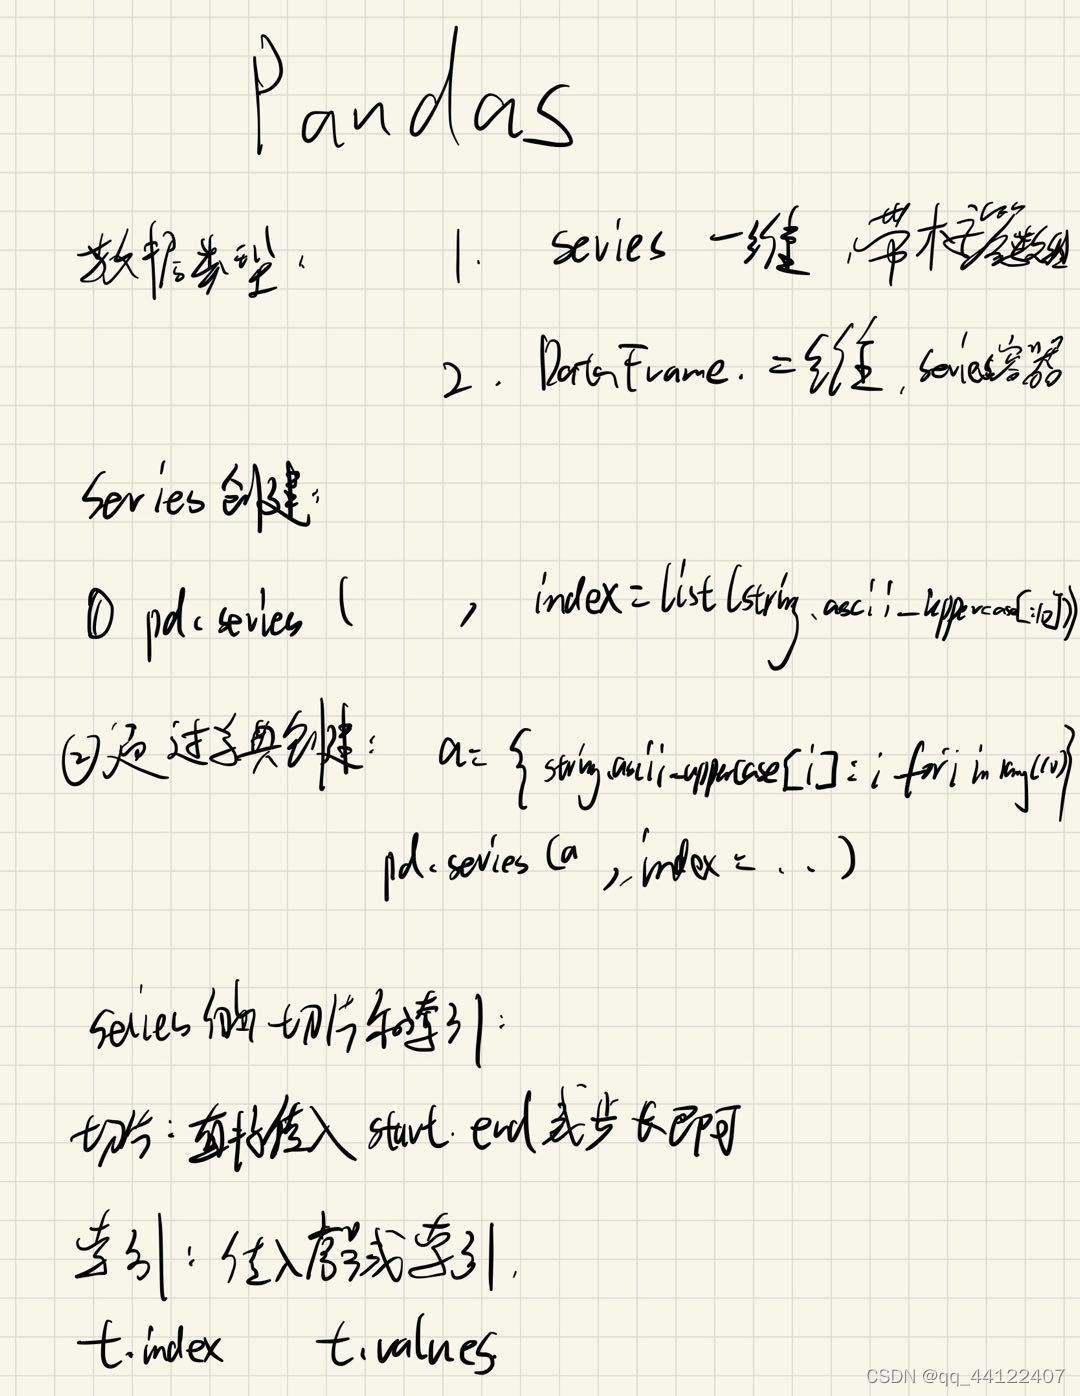 Pandas
数据类型: 1. series 一维,带标签数组
2. DataFrame. 二维,series容器
series创建:
① pd.series ( , index=list(string.ascii_uppercase[:10]))
②通过字典创建: a={string.ascii_uppercase[i]:i for i in rang(10)}
pd.series(a ,index=...)
series的切片和索引:
切片:直接传入 start. end或步长即可
索引:传入序号或索引.
t.index t.values
CSDN @qq_44122407